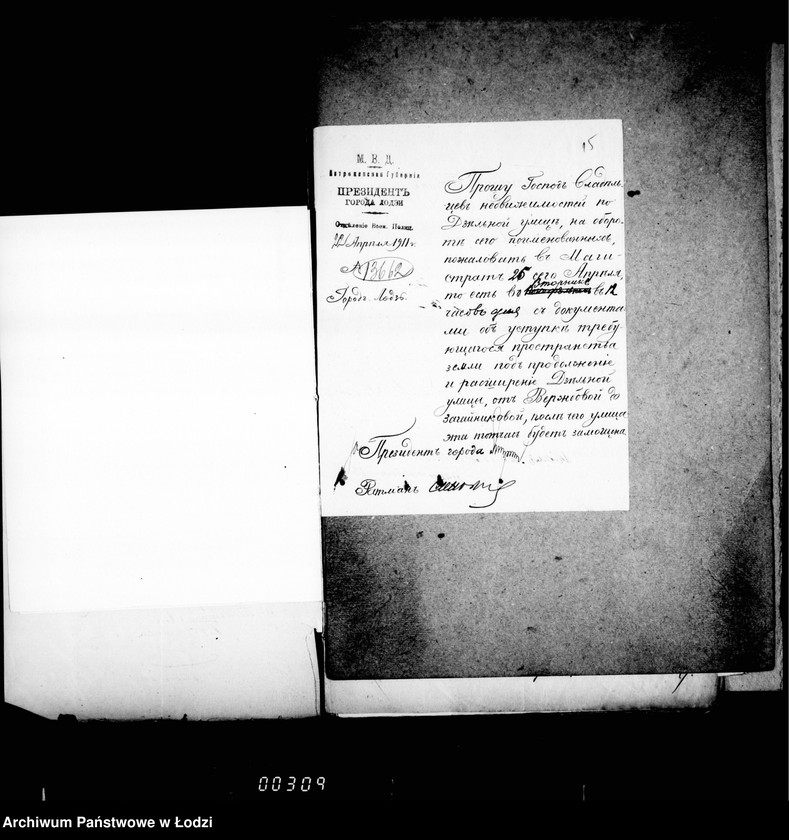 15
М. В. Д.
Петроковская Губернія
ПРЕЗИДЕНТЪ
ГОРОДА ЛОДЗИ
Отдѣленіе Воен. Полиц.
22 Апрѣля 1911 г.
№ 13662
Городъ Лодзь.
Прошу Господъ Владѣль-
цевъ недвижимостей по
Дзѣльной улицѣ, на оборо-
тѣ сего поименованныхъ,
пожаловать въ Маги-
стратъ 26 сего Апрѣля,
то есть въ Вторникъ въ 12
часовъ дня съ документа-
ми объ уступкѣ требу-
ющагося пространства
земли подъ продолженіе
и расширеніе Дзѣльной
улицы, отъ Вержбовой до
Загайниковой, послѣ чего улица
эта тотчасъ будетъ замощена
Президентъ города
Ратманъ
00309
Archiwum Państwowe w Łodzi